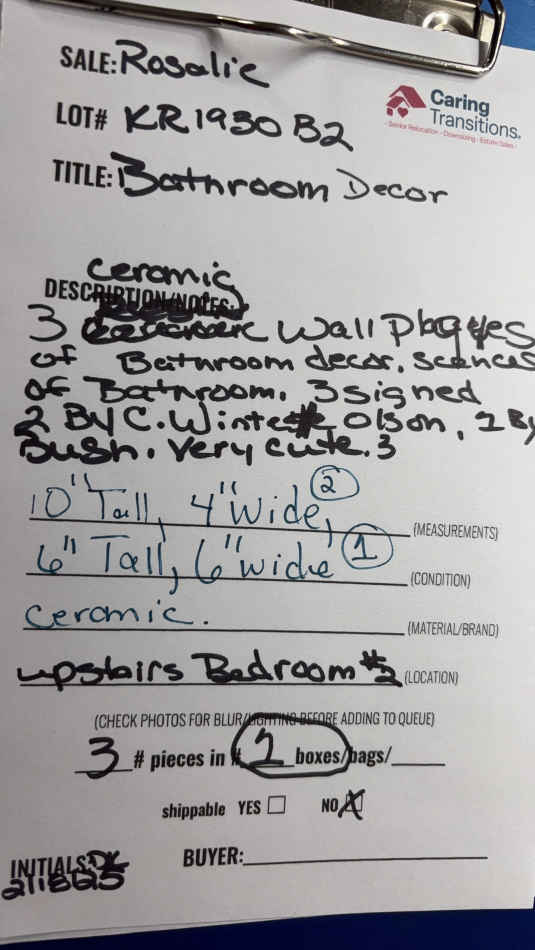 SALE: Rosalie
Caring
Transitions.
- Senior Relocation - Downsizing - Estate Sales -
LOT# KR1930 B2
TITLE: Bathroom Decor
ceramic
DESCRIPTION/NOTES:
3 Wall Plaques
of Bathroom decor. scences
of Bathroom. 3 signed
2 By C. Winter Olson, 1 By
Bush. Very cute. 3
10" Tall, 4" wide, 2 (MEASUREMENTS)
6" Tall, 6" wide 1 (CONDITION)
Ceramic. (MATERIAL/BRAND)
upstairs Bedroom #2 (LOCATION)
(CHECK PHOTOS FOR BLUR/LIGHTING BEFORE ADDING TO QUEUE)
3 # pieces in # 1 boxes/bags/
shippable YES NO X
INITIALS: DK BUYER: